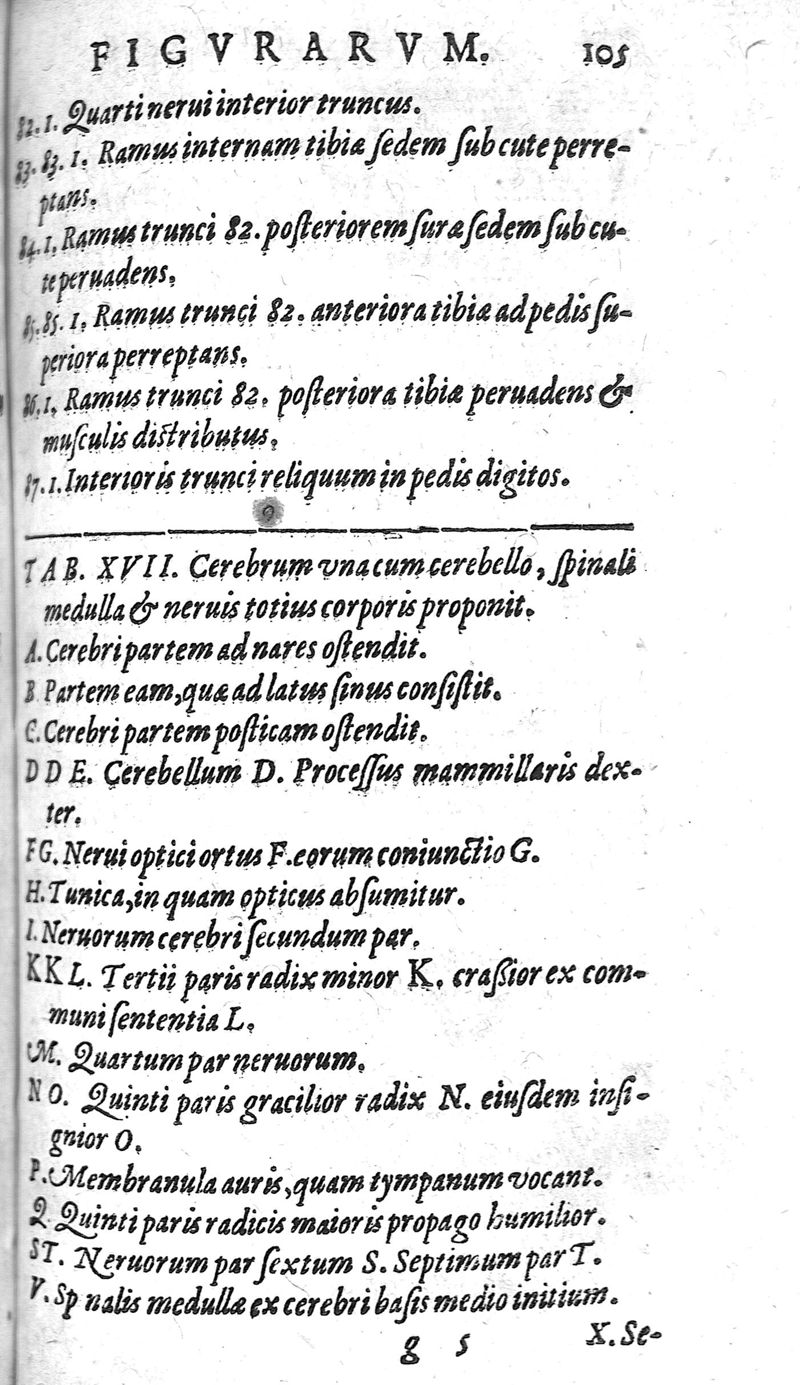 FIGVRARVM. 105
82. 1. Quarti nerui interior truncus.
83. 83. 1. Ramus internam tibiæ ſedem ſub cute perre-
ptans.
84. 1. Ramus trunci 82. poſteriorem ſuræ ſedem ſub cu-
te peruadens.
85. 85. 1. Ramus trunci 82. anteriora tibiæ ad pedis ſu-
periora perreptans.
86. 1. Ramus trunci 82. poſteriora tibiæ peruadens &
muſculis diſtributus.
87. 1. Interioris trunci reliquum in pedis digitos.
TAB. XVII. Cerebrum vna cum cerebello, ſpinali
medulla & neruis totius corporis proponit.
A. Cerebri partem ad nares oſtendit.
B Partem eam, quæ ad latus ſinus conſiſtit.
C. Cerebri partem poſticam oſtendit.
D D E. Cerebellum D. Proceſſus mammillaris dex-
ter.
FG. Nerui optici ortus F. eorum coniunctio G.
H. Tunica, in quam opticus abſumitur.
I. Neruorum cerebri ſecundum par.
KK L. Tertii paris radix minor K. craſſior ex com-
muni ſententia L.
M. Quartum par neruorum.
N O. Quinti paris gracilior radix N. eiuſdem inſi-
gnior O.
P. Membranula auris, quam tympanum vocant.
Q Quinti paris radicis maioris propago humilior.
ST. Neruorum par ſextum S. Septimum par T.
V. Sp nalis medullæ ex cerebri baſis medio initium.
g 5 X. Se-